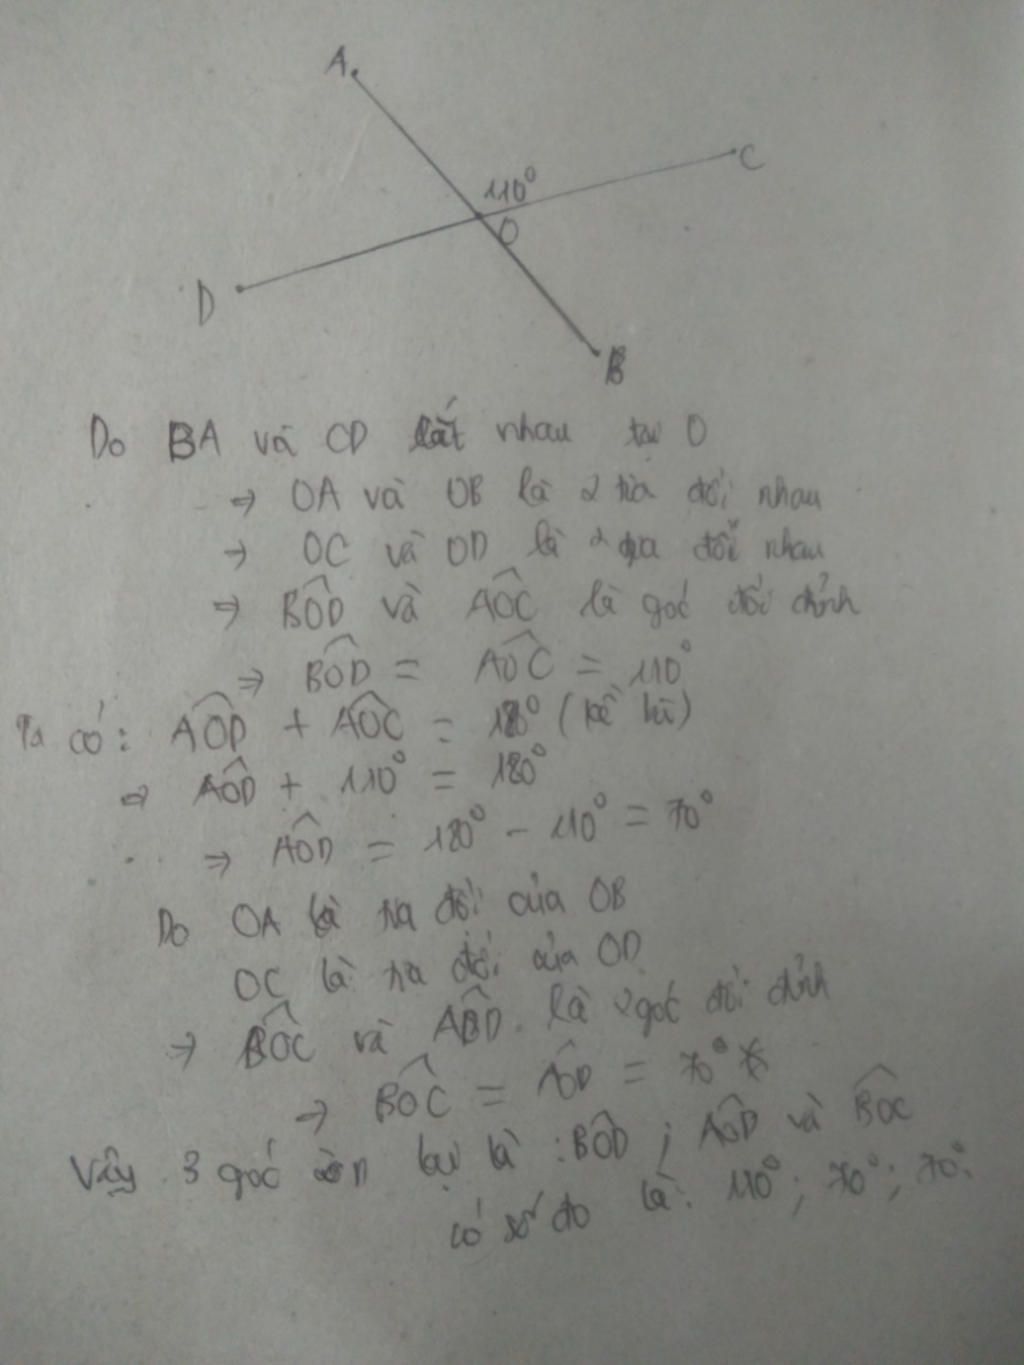 A
C
110°
O
D
B
Do BA và CD cắt nhau tại O
⇒ OA và OB là 2 tia đối nhau
⇒ OC và OD là 2 tia đối nhau
⇒ BOD và AOC là góc đối đỉnh
⇒ BOD = AOC = 110°
Ta có: AOD + AOC = 180° (kề bù)
⇒ AOD + 110° = 180°
⇒ AOD = 180° - 110° = 70°
Do OA là tia đối của OB
OC là tia đối của OD
⇒ BOC và AOD là 2 góc đối đỉnh
⇒ BOC = AOD = 70°
Vậy 3 góc còn lại là: BOD ; AOD và BOC
có số đo là: 110° ; 70° ; 70°.